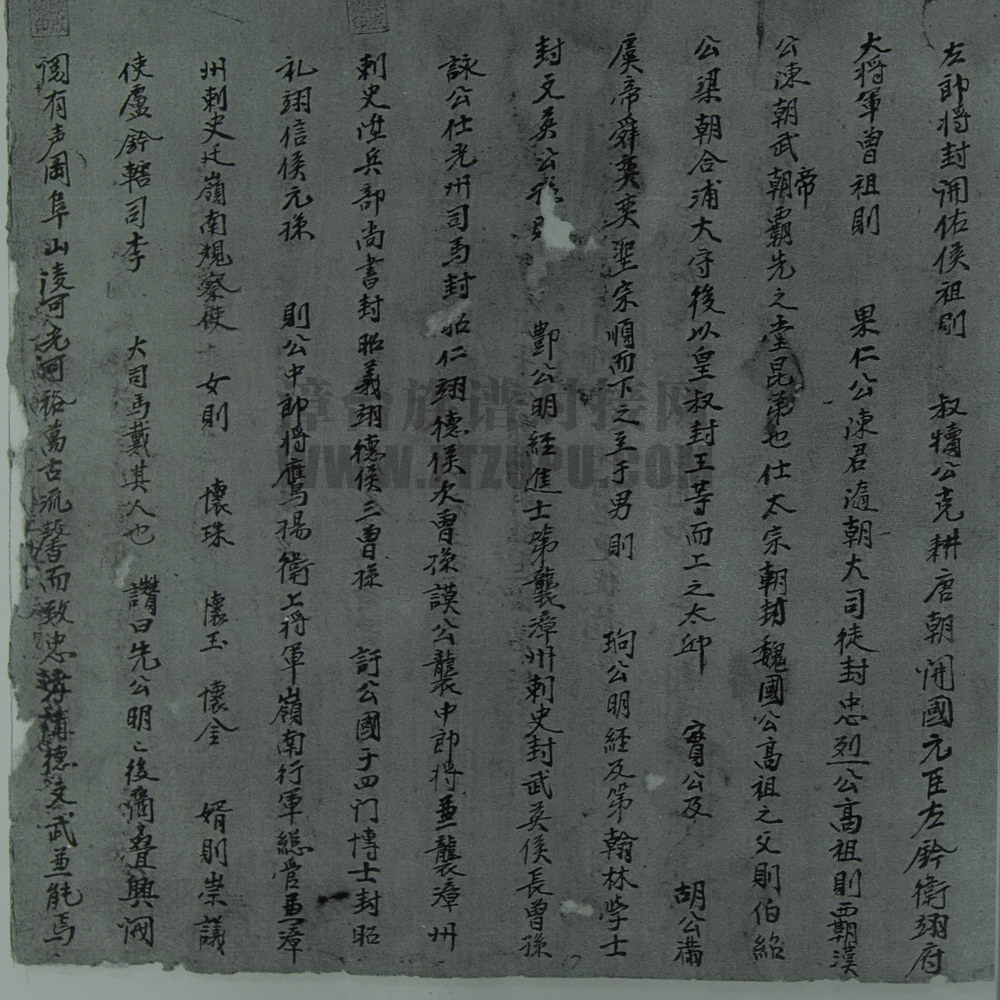 左郎将封開佑侯祖則 叔犢公克耕唐朝開國元臣左鈐衛翊府
大将軍曾祖則 果仁公陳君遁朝大司徒封忠烈公高祖則覇漢
公陳朝武帝朝覇先之堂昆弟也仕太宗朝封魏國公高祖之父則伯紹
公梁朝合浦大守後以皇叔封王等而上之太邱 寔公及 胡公滿
虞帝舜奕奕聖宗順而下之至于男則 珦公明経及第翰林學士
封文英公 酆公明經進士第襲漳州剌史封武英侯長曾孫
詠公仕光州司馬封昭仁翊德侯次曾孫謨公襲中郎将兼襲漳州
剌史陞兵部尚書封昭義翊德侯三曾孫 訏公國子四门博士封昭
礼翊信侯元孫 則公中郎将鷹揚衛上将軍嶺南行軍総管兼漳
州剌史迁嶺南規察使 女則 懷珠 懷玉 懷金 婿則崇議
使盧鈐轄司李 大司馬戴其人也 讚曰先公明亡後裔叠興
有声 阜山淩河 裕萬古流馨而致忠 補德文武兼能焉
漳台族谱对接网
WWW.ZTZUPU.COM